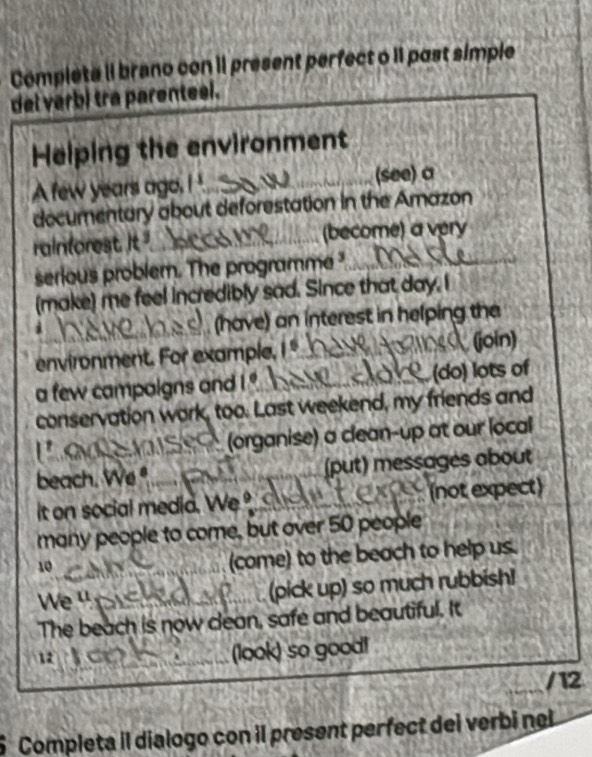 Completa il brano con il present perfect o il past simple
dei verbi tra parentesi.
Helping the environment
A few years ago, I ¹ saw (see) a
documentary about deforestation in the Amazon
rainforest. It ² became (become) a very
serious problem. The programme ³ made
(make) me feel incredibly sad. Since that day, I
⁴ have had (have) an interest in helping the
environment. For example, I ⁵ have joined (join)
a few campaigns and I ⁶ have done (do) lots of
conservation work, too. Last weekend, my friends and
I ⁷ organised (organise) a clean-up at our local
beach. We ⁸ put (put) messages about
it on social media. We ⁹ didn't expect (not expect)
many people to come, but over 50 people
10 came (come) to the beach to help us.
We 11 picked up (pick up) so much rubbish!
The beach is now clean, safe and beautiful. It
12 look (look) so good!
/12
5 Completa il dialogo con il present perfect dei verbi nel